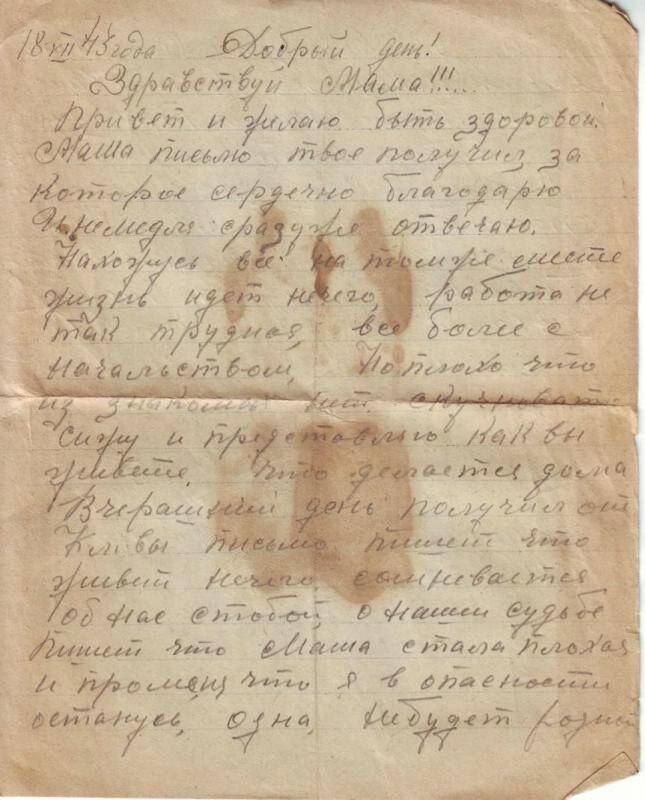 18 XII 43 года Добрый день!
Здравствуй Мама!!!....
Привет и желаю быть здоровой.
Маша письмо твое получил за
которое сердечно благодарю
сразуже отвечаю.
Нахожусь все на томже месте
жизнь идет нечего, работа не
так трудная, все более с
начальством, Но плохо что
из знакомых нет. скучновато
сижу и представлю как вы
живете. Что делается дома
Вчерашний день получил от
Клавы письмо пишет что
живет нечего сомневается
об нас стобой о нашей судьбе
Пишет что Маша стала плохая
и променя что я в опасности
останусь, одна, небудет родной